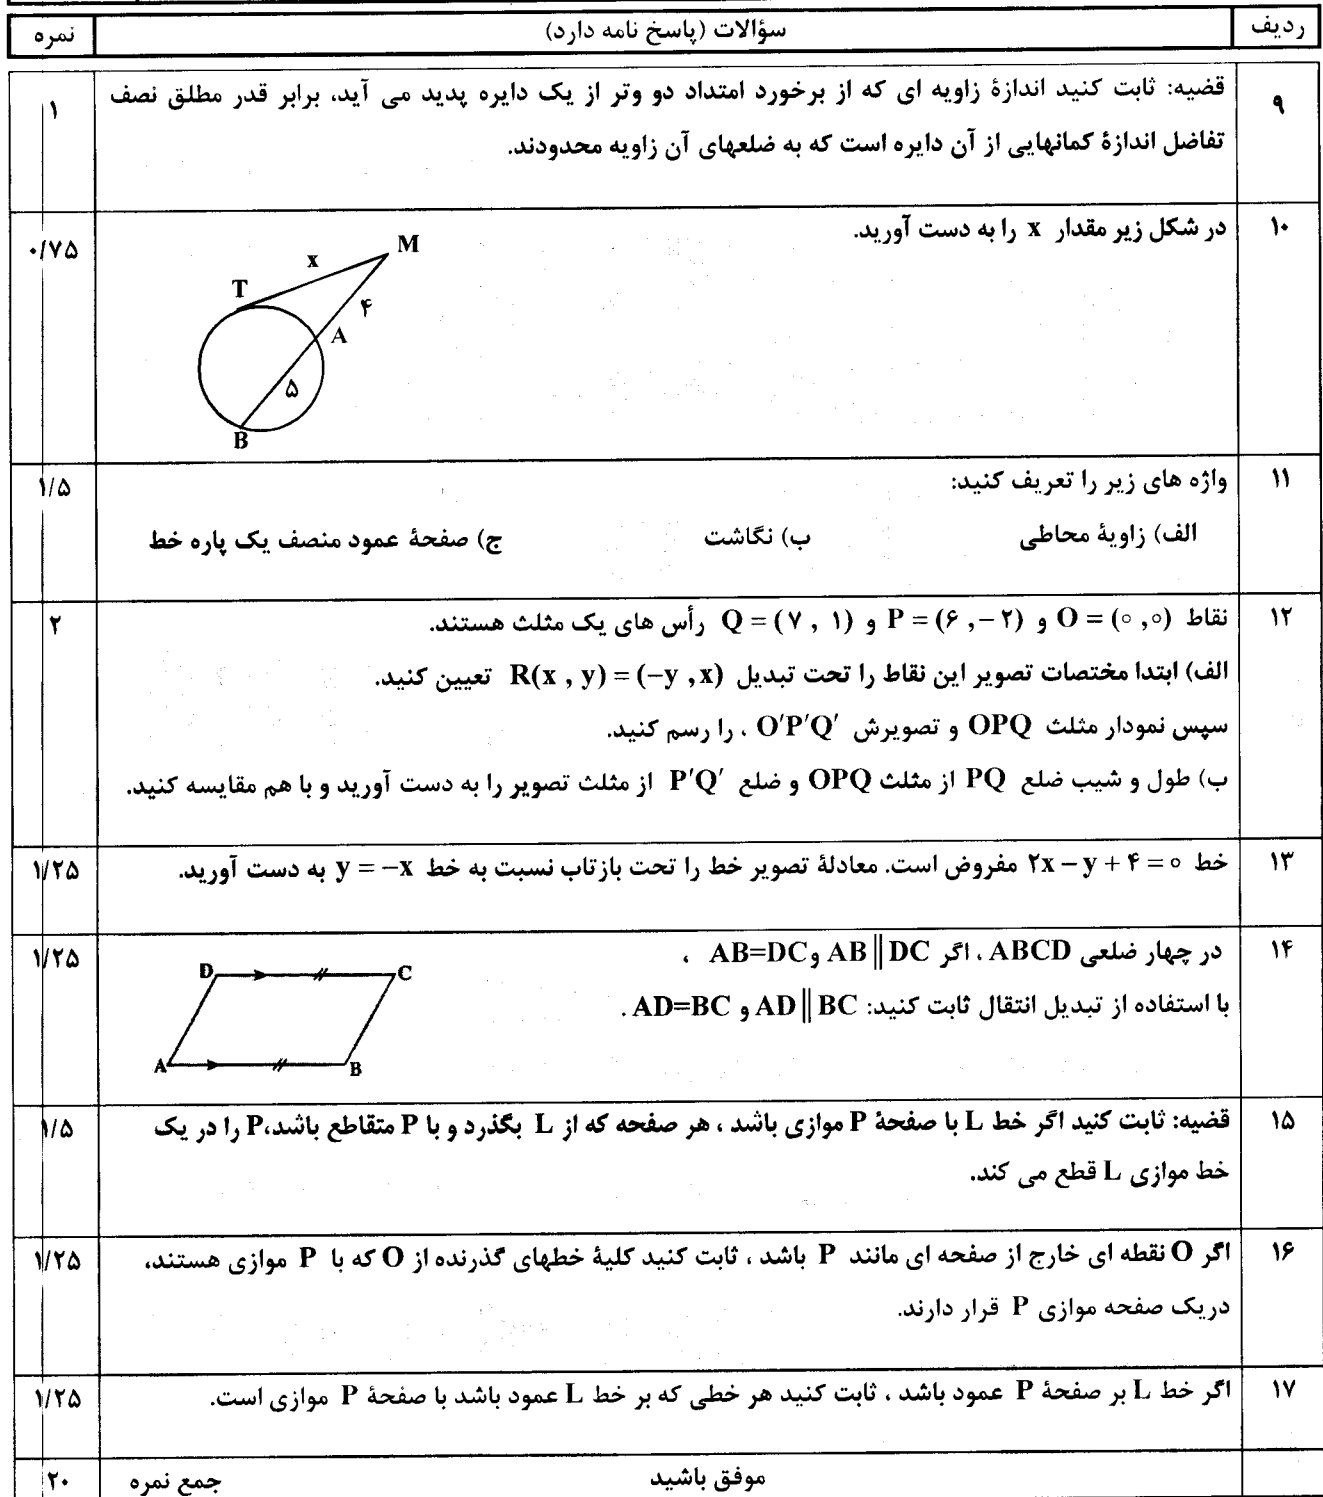 ردیف سؤالات (پاسخ نامه دارد) نمره
۹ قضیه: ثابت کنید اندازهٔ زاویه ای که از برخورد امتداد دو وتر از یک دایره پدید می آید، برابر قدر مطلق نصف ۱
تفاضل اندازهٔ کمانهایی از آن دایره است که به ضلعهای آن زاویه محدودند.
۱۰ در شکل زیر مقدار x را به دست آورید. ۰/۷۵
M
x
T
۴
A
۵
B
۱۱ واژه های زیر را تعریف کنید: ۱/۵
الف) زاویهٔ محاطی ب) نگاشت ج) صفحهٔ عمود منصف یک پاره خط
۱۲ نقاط O = (۰ , ۰) و P = (۶ , −۲) و Q = (۷ , ۱) رأس های یک مثلث هستند. ۲
الف) ابتدا مختصات تصویر این نقاط را تحت تبدیل R(x , y) = (−y , x) تعیین کنید.
سپس نمودار مثلث OPQ و تصویرش O′P′Q′ ، را رسم کنید.
ب) طول و شیب ضلع PQ از مثلث OPQ و ضلع P′Q′ از مثلث تصویر را به دست آورید و با هم مقایسه کنید.
۱۳ خط ۲x − y + ۴ = ۰ مفروض است. معادلهٔ تصویر خط را تحت بازتاب نسبت به خط y = −x به دست آورید. ۱/۲۵
۱۴ در چهار ضلعی ABCD ، اگر AB || DC و AB=DC ، ۱/۲۵
با استفاده از تبدیل انتقال ثابت کنید: AD || BC و AD=BC .
D C
A B
۱۵ قضیه: ثابت کنید اگر خط L با صفحهٔ P موازی باشد ، هر صفحه که از L بگذرد و با P متقاطع باشد،P را در یک ۱/۵
خط موازی L قطع می کند.
۱۶ اگر O نقطه ای خارج از صفحه ای مانند P باشد ، ثابت کنید کلیهٔ خطهای گذرنده از O که با P موازی هستند، ۱/۲۵
دریک صفحه موازی P قرار دارند.
۱۷ اگر خط L بر صفحهٔ P عمود باشد ، ثابت کنید هر خطی که بر خط L عمود باشد با صفحهٔ P موازی است. ۱/۲۵
موفق باشید جمع نمره ۲۰